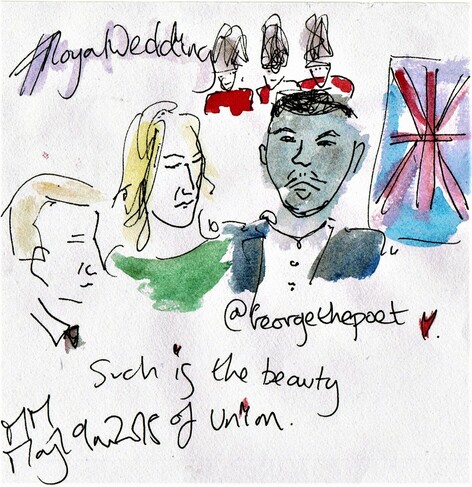 #RoyalWedding
@Georgethepoet
Such is the beauty
of Union.
MM
May 2018